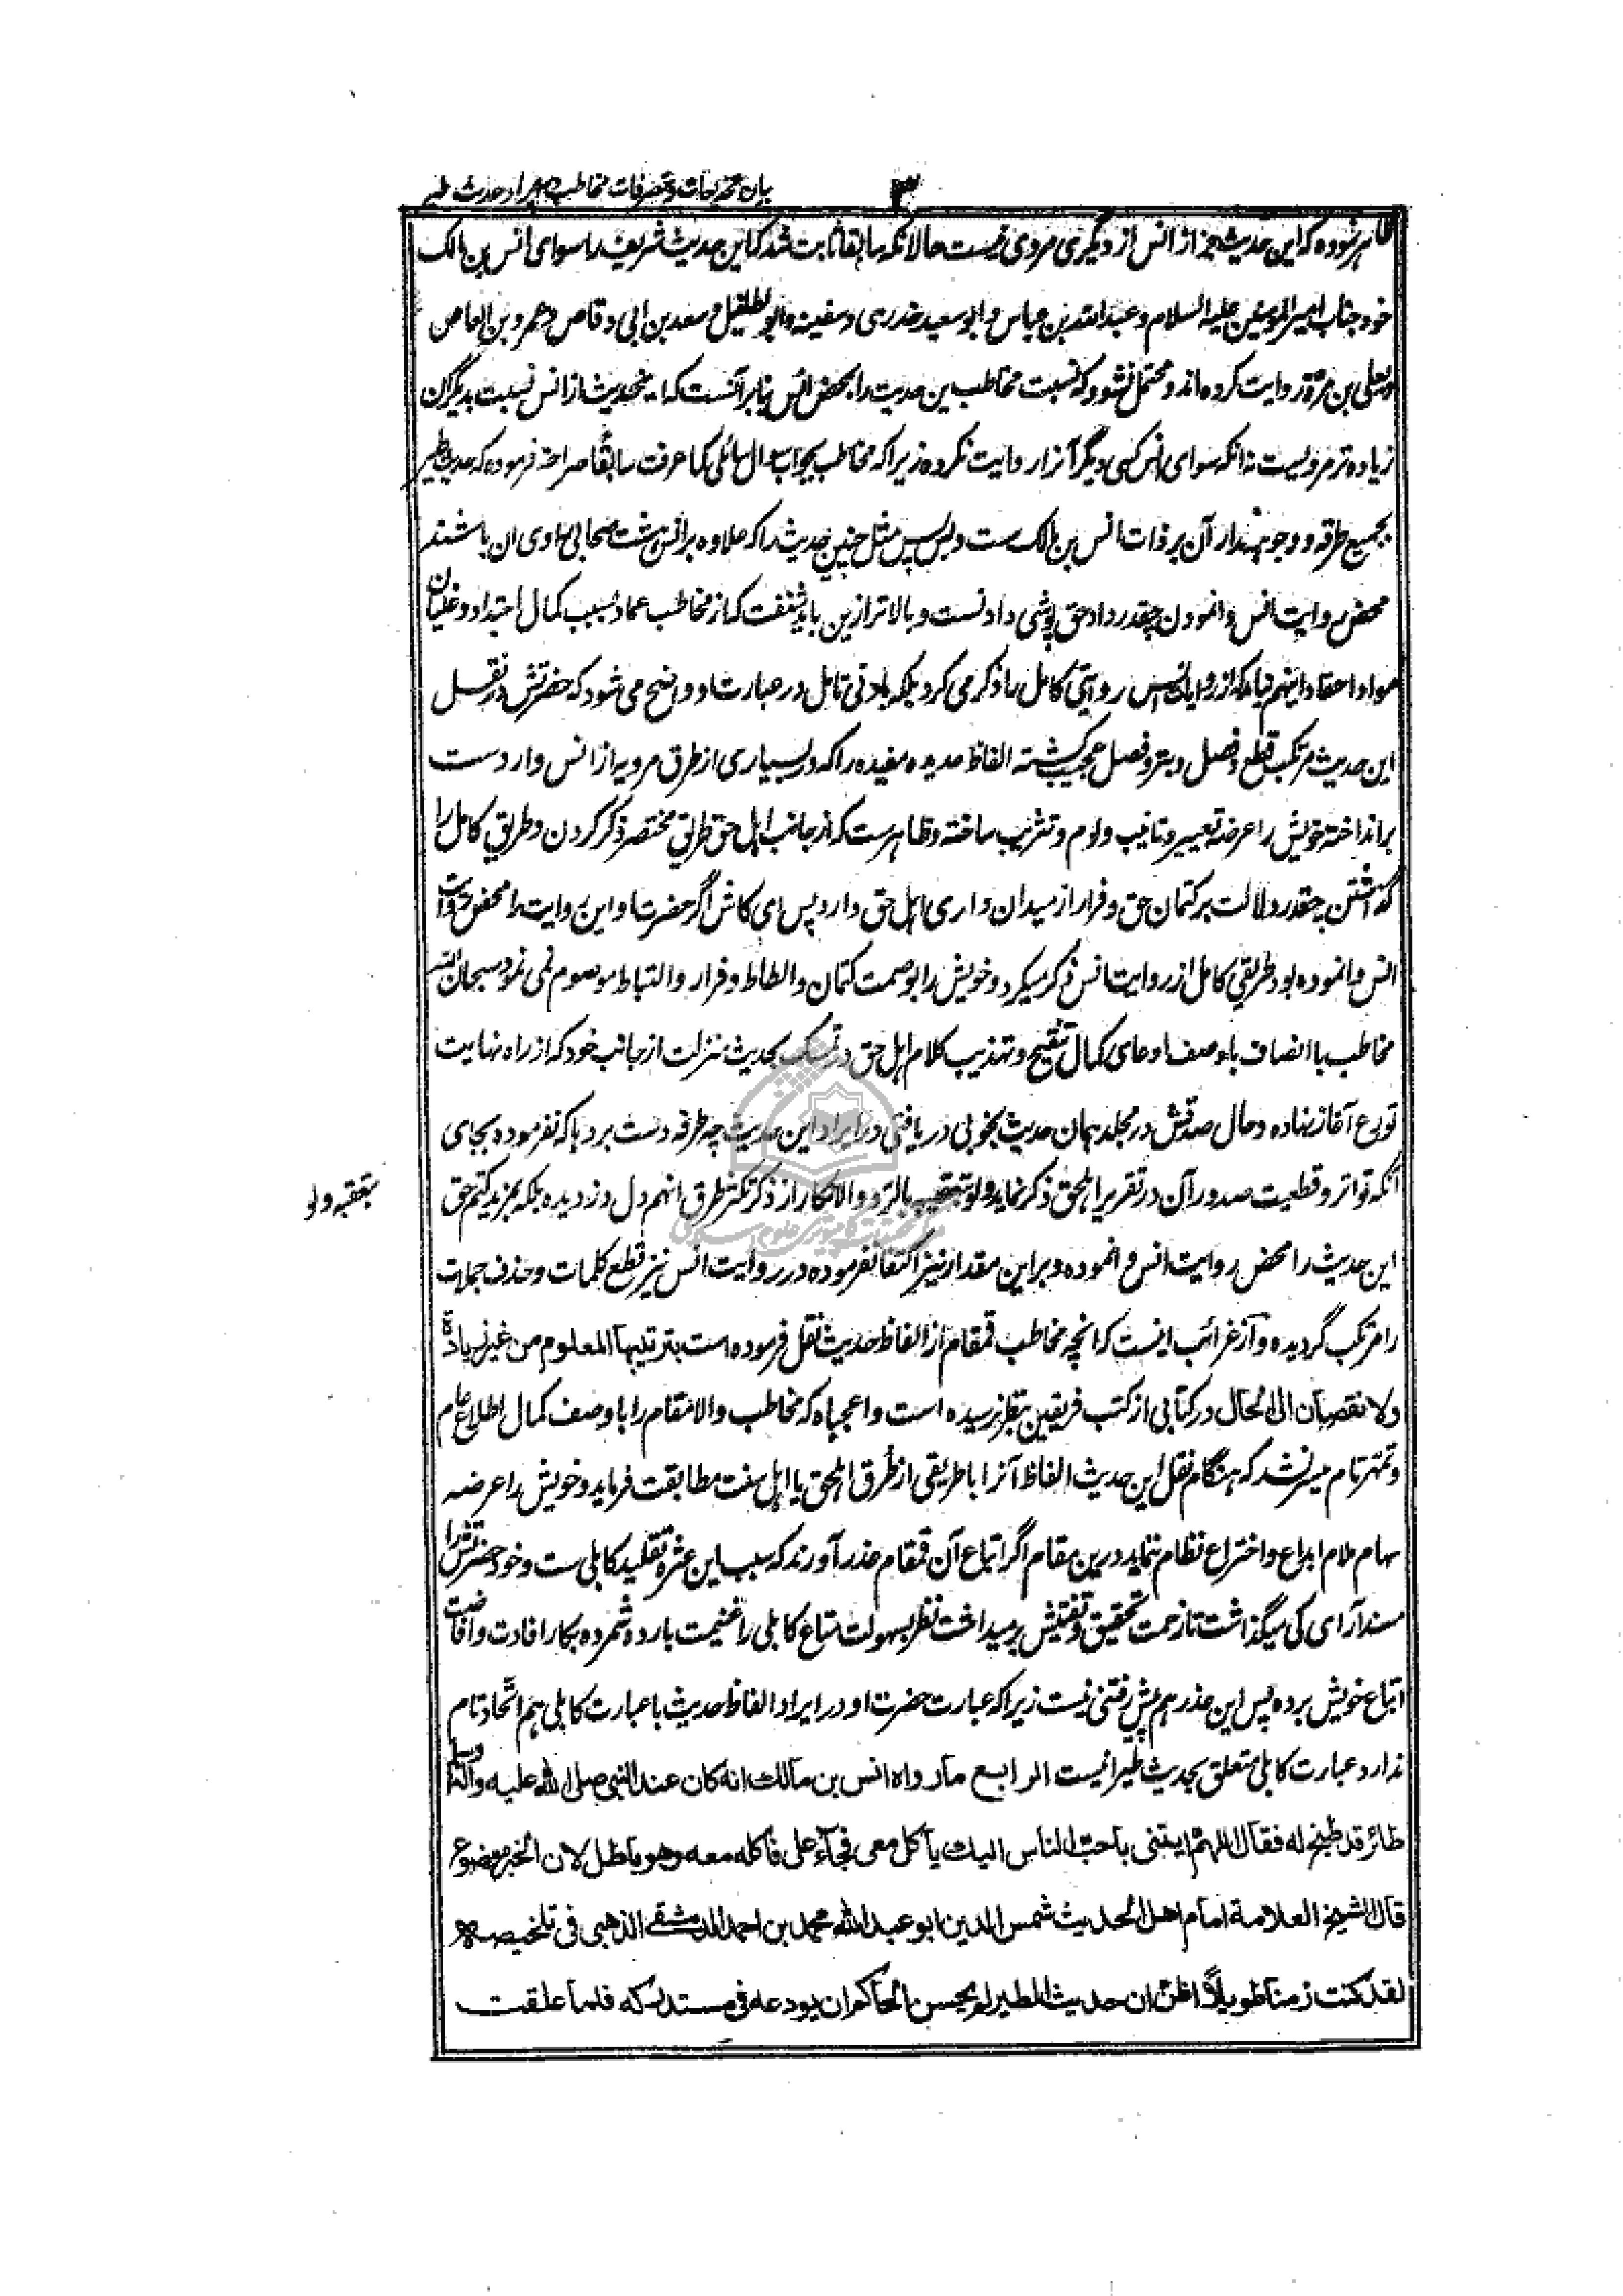 بیان تحریفات و تصرفات مخاطب در ایراد حدیث طیر
۳
ظاهر نموده که این حدیث جز از انس از دیگری مروی نیست حالانکه سابقا ثابت شد که این حدیث شریف را سوای انس بن مالک
خود جناب امیر المومنین علیه السلام و عبد الله بن عباس و ابو سعید خدری و سفینه و ابو الطفیل و سعد بن ابی وقاص و عمرو بن العاص
و یعلی بن مرة روایت کرده‌اند و محتمل نشود که نسبت مخاطب این حدیث را بمحض انس بنابر آنست که اینحدیث از انس نسبت بدیگران
زیاده‌تر مرویست نه آنکه سوای انس کسی دیگر آنرا روایت نکرده زیرا که مخاطب بجواب سوال سائلی کما عرفت سابقا صراحة فرموده که حدیث طیر
بجمیع طرقه و وجوهه مدار آن بر ذات انس بن مالک ست و بس پس مثل چنین حدیث را که علاوه بر انس هشت صحابی راوی ان باشند
محض روایت انس وانمودن چقدر داد حق پوشی دادنست و بالاتر ازین باید شنفت که از مخاطب عماد بسبب کمال احتداد و غلیان
مواد احقاد اینهم نیامد که از روایات انس روایتی کامل را ذکر می کرد بلکه بادنی تامل در عبارت او واضح می شود که حضرتش در نقل
این حدیث مرتکب قطع و فصل و بتر و فصل عجیب گشته الفاظ عدیده مفیده را که در بسیاری از طرق مرویه از انس وارد ست
برانداخته خویش را عرضه تعییر و تانیب و لوم و تثریب ساخته و ظاهر ست که از جانب اهل حق طریق مختصر ذکر کردن و طریق کامل را
گذاشتن چقدر دلالت بر کتمان حق و فرار از میدان واری اهل حق دارد پس ای کاش اگر حضرت او این روایت را محض روایت
انس وانموده بود طریقی کامل از روایت انس ذکر میکرد و خویش را بوصمت کتمان و الطاط و فرار و التباط موصوم نمی نمود سبحان الله
مخاطب با انصاف باوصف ادعای کمال تنقیح و تهذیب کلام اهل حق در تمسک بحدیث منزلت از جانب خود که از راه نهایت
تورع آغاز نهاده و حال صدقش در مجلد همان حدیث بخوبی دریافتی در ایراد این حدیث چه طرفه دست بردها که نفرموده بجای
آنکه تواتر و قطعیت صدور آن در تقریر اهل حق ذکر نماید ولو بتعقبه بالرد و الانکار از ذکر تکثر طرق انهم دل دزدیده بلکه بمزید کتم حق
بتعقبه ولو
این حدیث را محض روایت انس وانموده و بر این مقدار نیز اکتفا نفرموده در روایت انس نیز قطع کلمات و حذف جملات
را مرتکب گردیده و از غرائب اینست که انچه مخاطب قمقام از الفاظ حدیث نقل فرموده است بترتیبها المعلوم من غیر زیادة
ولا نقصان الی الحال در کتابی از کتب فریقین بنظر نرسیده است واعجباه که مخاطب والامقام را باوصف کمال اطلاع عام
و تمهر تام میسر نشد که هنگام نقل این حدیث الفاظ آنرا با طریقی از طرق اهل حق یا اهل سنت مطابقت فرماید و خویش را عرضه
سهام ملام ابداع و اختراع نظام ننماید درین مقام اگر اتباع آن قمقام عذر آورند که سبب این عثره تقلید کابلی ست و خود حضرتش را
مسند آرای کی میگذاشت تا زحمت تحقیق و تفتیش برمیداشت نظر بسهولت اتباع کابلی را غنیمت بارده شمرده بکار افادت و افاضت
اتباع خویش برده پس این عذر هم پیش رفتنی نیست زیرا که عبارت حضرت او در ایراد الفاظ حدیث با عبارت کابلی هم اتحاد تام
ندارد و عبارت کابلی متعلق بحدیث طیر اینست الرابع ما رواه انس بن مالک انه کان عند النبی صلی الله علیه وآله وسلم
طائر قد طبخ له فقال اللهم ایتنی باحب الناس الیک یاکل معی فجاء علی فاکله معه وهو باطل لان الخبر موضوع
قال الشیخ العلامة امام اهل الحدیث شمس الدین ابو عبد الله محمد بن احمد الدمشقی الذهبی فی تلخیصه
لقد کنت زمنا طویلا اظن ان حدیث الطیر لم یحسن الحاکم ان یودعه فی مستدرکه فلما علقت
مرکز تحقیقات کامپیوتری علوم اسلامی